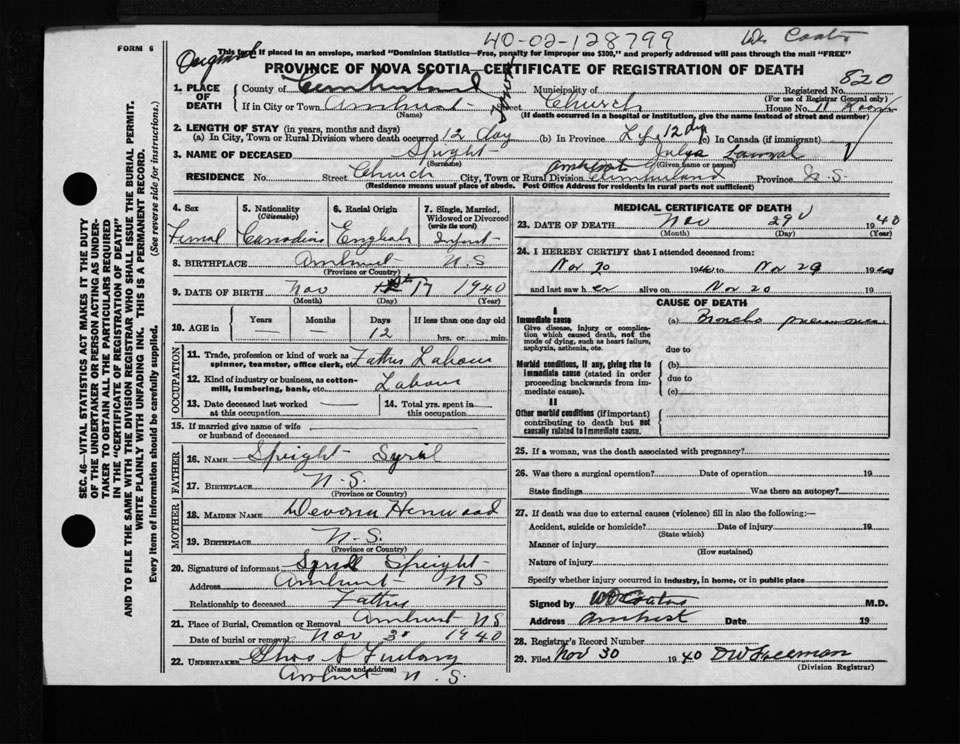 FORM 6
40-02-128799
Original
This form if placed in an envelope, marked "Dominion Statistics—Free, penalty for improper use $300," and properly addressed will pass through the mail "FREE"
PROVINCE OF NOVA SCOTIA—CERTIFICATE OF REGISTRATION OF DEATH
820
1. PLACE OF DEATH
County of Cumberland Municipality of Registered No.
(For use of Registrar General only)
If in City or Town Amherst Street Church House No. 11
(Name) (If death occurred in a hospital or institution, give the name instead of street and number)
2. LENGTH OF STAY (in years, months and days)
(a) In City, Town or Rural Division where death occurred 12 day (b) In Province Life 12 dys (c) In Canada (if immigrant)
3. NAME OF DECEASED Speight
(Surname) (Given name or names)
RESIDENCE No. Street Church City, Town or Rural Division Amherst Cumberland Province N.S.
(Residence means usual place of abode. Post Office Address for residents in rural parts not sufficient)
SEC. 46—VITAL STATISTICS ACT MAKES IT THE DUTY
OF THE UNDERTAKER OR PERSON ACTING AS UNDER-
TAKER TO OBTAIN ALL THE PARTICULARS REQUIRED
IN THE "CERTIFICATE OF REGISTRATION OF DEATH"
AND TO FILE THE SAME WITH THE DIVISION REGISTRAR WHO SHALL ISSUE THE BURIAL PERMIT.
WRITE PLAINLY WITH UNFADING INK. THIS IS A PERMANENT RECORD.
Every item of information should be carefully supplied. (See reverse side for instructions.)
4. Sex
Femal
5. Nationality
(Citizenship)
Canadian
6. Racial Origin
English
7. Single, Married,
Widowed or Divorced
(write the word)
Infant
8. BIRTHPLACE Amherst N.S
(Province or Country)
9. DATE OF BIRTH Nov 17 1940
(Month) (Day) (Year)
10. AGE in
Years Months Days If less than one day old
— — 12 hrs. or min.
OCCUPATION
11. Trade, profession or kind of work as
spinner, teamster, office clerk, etc. Father Labour
12. Kind of industry or business, as cotton-
mill, lumbering, bank, etc. Labour
13. Date deceased last worked
at this occupation
14. Total yrs. spent in
this occupation
15. If married give name of wife
or husband of deceased
FATHER
16. NAME Speight Syril
17. BIRTHPLACE N.S.
(Province or Country)
MOTHER
18. MAIDEN NAME Henwood
19. BIRTHPLACE N.S.
(Province or Country)
20. Signature of informant Syril Speight
Address Amherst NS
Relationship to deceased Father
21. Place of Burial, Cremation or Removal Amherst NS
Date of burial or removal Nov 30 1940
22. UNDERTAKER
(Name and address)
Amherst N.S.
MEDICAL CERTIFICATE OF DEATH
23. DATE OF DEATH Nov 29 1940
(Month) (Day) (Year)
24. I HEREBY CERTIFY that I attended deceased from:
Nov 20 1940 to Nov 29 1940
and last saw her alive on Nov 20 19
CAUSE OF DEATH
I
Immediate cause
Give disease, injury or complica-
tion which caused death, not the
mode of dying, such as heart failure,
asphyxia, asthenia, etc.
(a) Broncho pneumonia
due to
Morbid conditions, if any, giving rise to
immediate cause (stated in order
proceeding backwards from im-
mediate cause).
(b)
due to
(c)
II
Other morbid conditions (if important)
contributing to death but not
causally related to immediate cause.
25. If a woman, was the death associated with pregnancy?
26. Was there a surgical operation? Date of operation 19
State findings Was there an autopsy?
27. If death was due to external causes (violence) fill in also the following:—
Accident, suicide or homicide? Date of injury 19
(State which)
Manner of injury
(How sustained)
Nature of injury
Specify whether injury occurred in industry, in home, or in public place
Signed by M.D.
Address Amherst Date 19
28. Registrar's Record Number
29. Filed Nov 30 1940 DW Freeman
(Division Registrar)